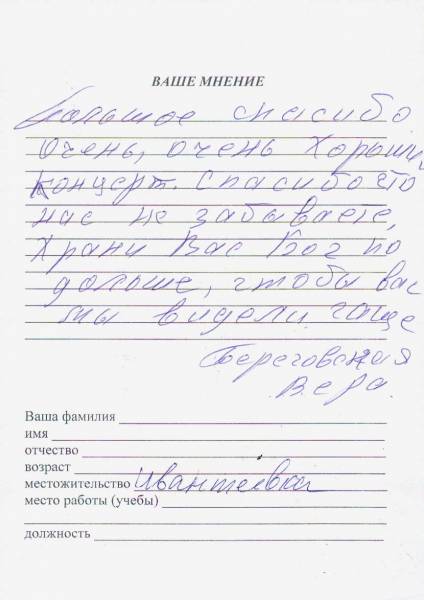 ВАШЕ МНЕНИЕ
Большое спасибо
очень, очень хороший
концерт. Спасибо что
нас не забываете,
Храни Вас Бог по
дольше, чтобы вас
мы видели чаще
Береговская
Вера.
Ваша фамилия
имя
отчество
возраст
местожительство Ивантеевка
место работы (учебы)
должность